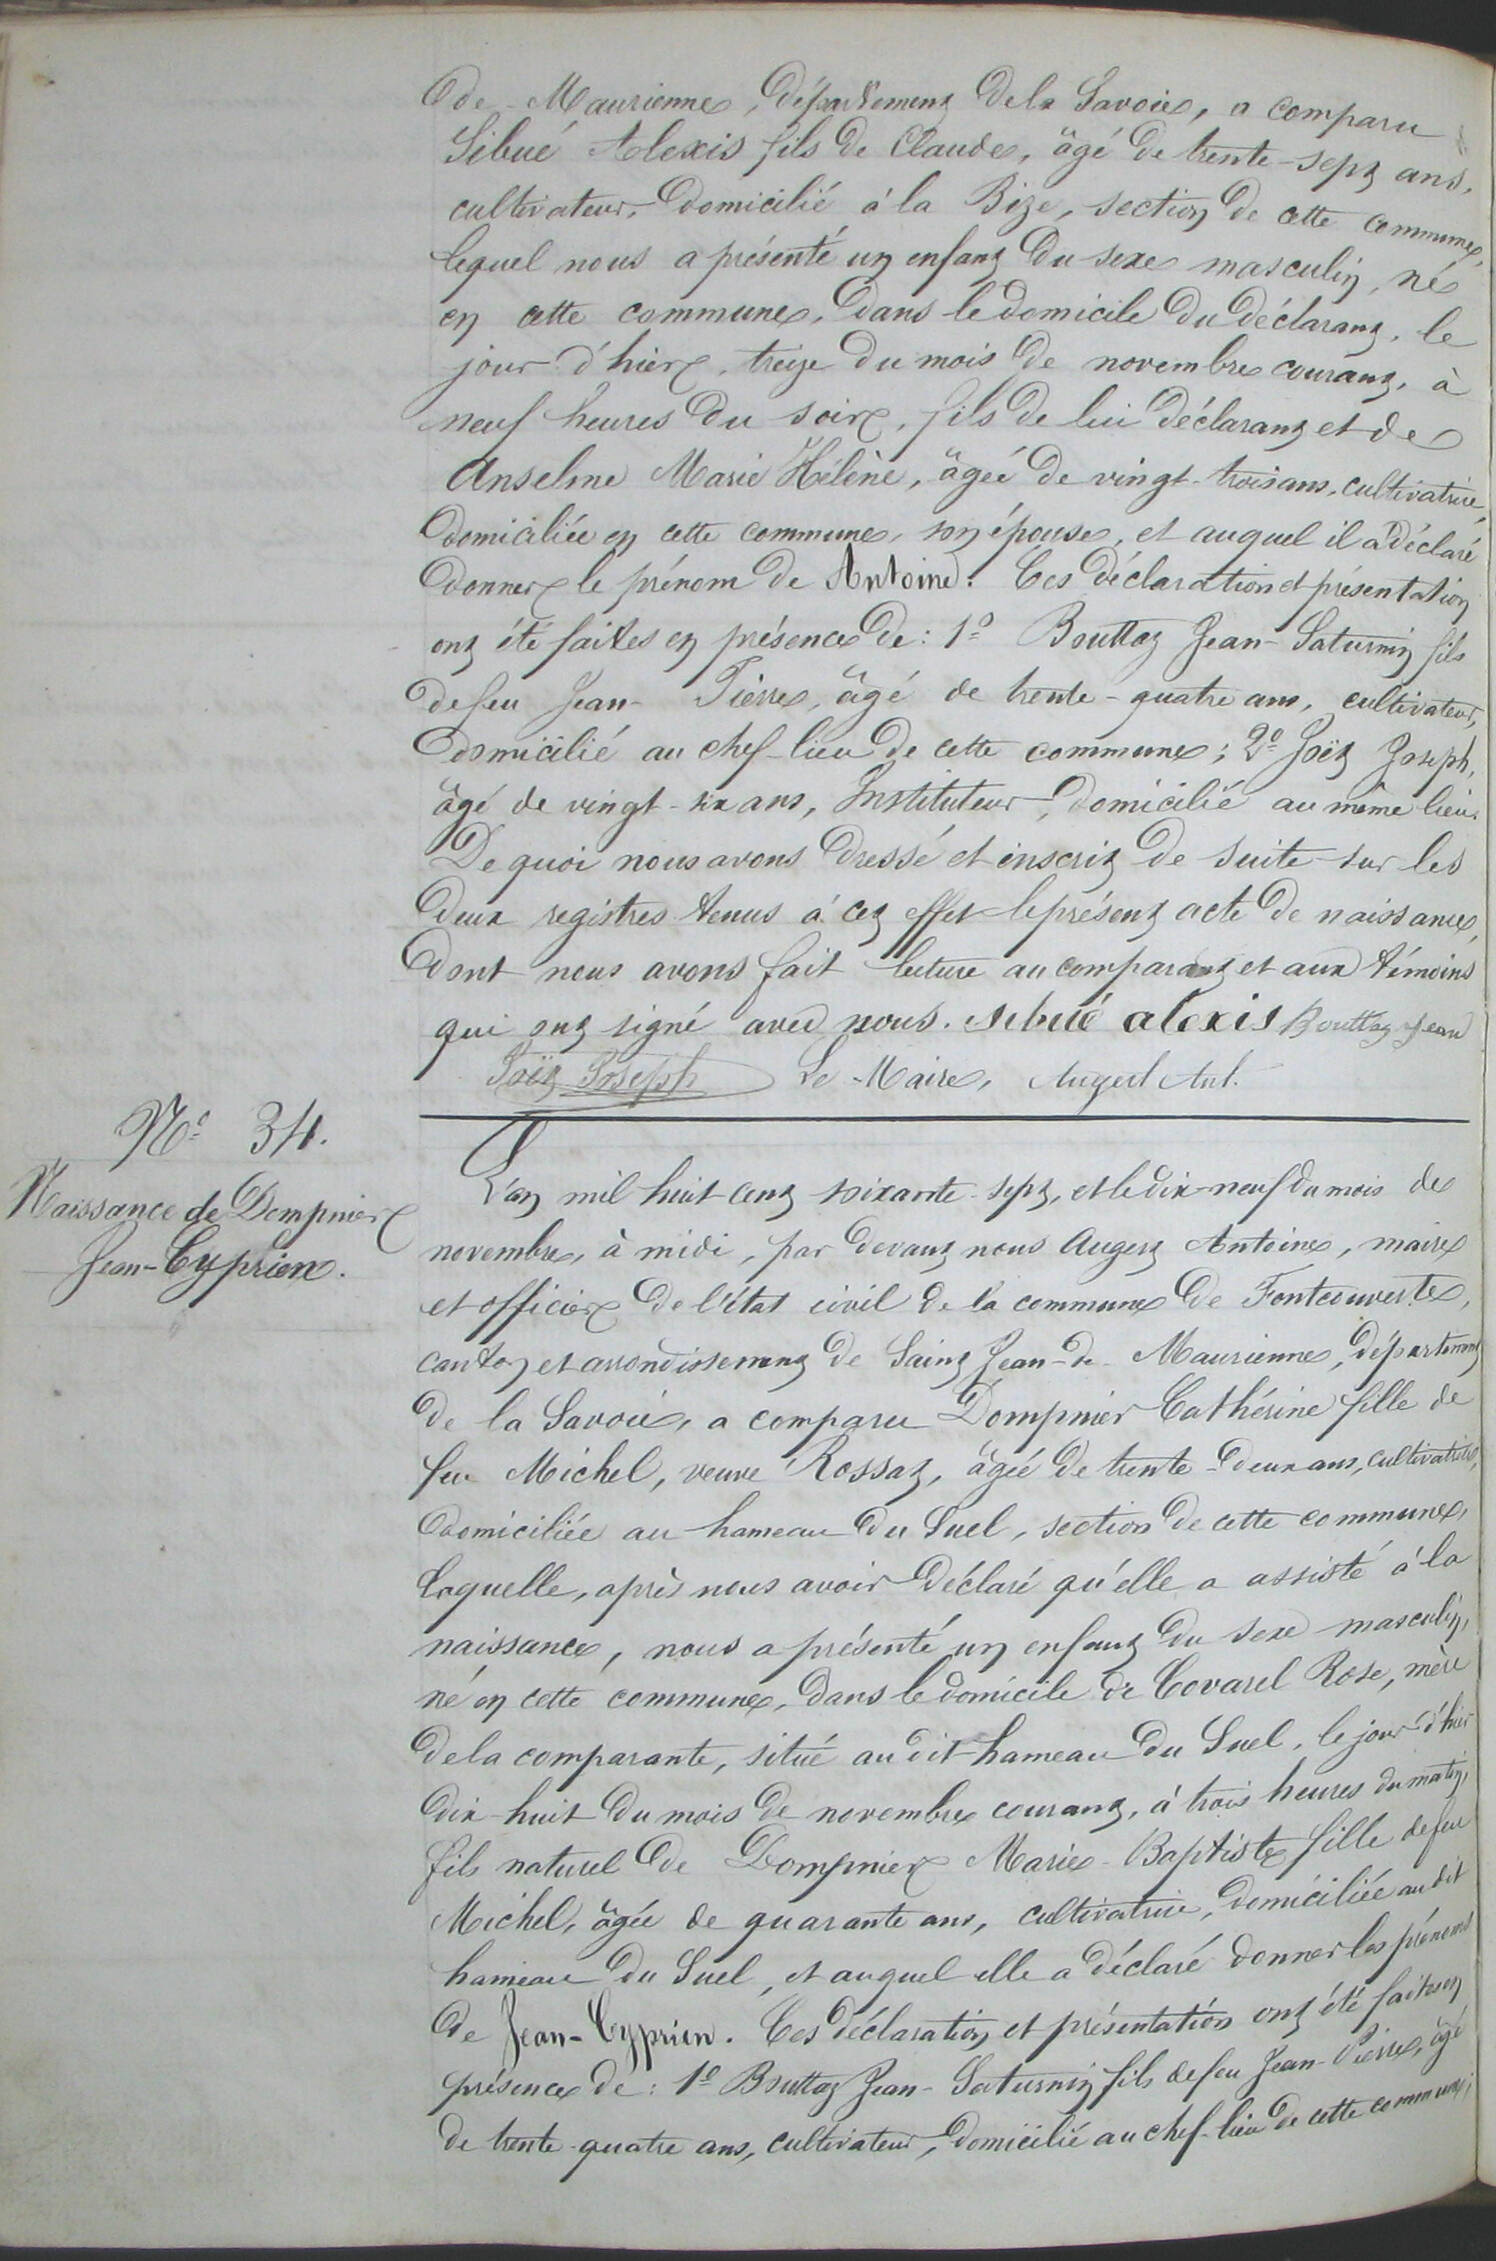 de-Maurienne, département de la Savoie, a comparu
Sibué Alexis fils de Claude, âgé de trente-sept ans,
cultivateur, domicilié à la Bize, section de cette commune,
lequel nous a présenté un enfant du sexe masculin, né
en cette commune, dans le domicile du déclarant, le
jour d'hier, treize du mois de novembre courant, à
neuf heures du soir, fils de lui déclarant et de
Anselme Marie Hélène, âgée de vingt-trois ans, cultivatrice,
domiciliée en cette commune, son épouse, et auquel il a déclaré
donner le prénom de Antoine. Ces déclaration et présentation
ont été faites en présence de : 1º Bouttaz Jean-Saturnin fils
de feu Jean-Pierre, âgé de trente-quatre ans, cultivateur,
domicilié au chef-lieu de cette commune ; 2º Joët Joseph,
âgé de vingt-six ans, Instituteur, domicilié au même lieu.
De quoi nous avons dressé et inscrit de suite sur les
deux registres tenus à cet effet le présent acte de naissance,
dont nous avons fait lecture au comparant et aux témoins
qui ont signé avec nous. sibué alexis Bouttaz Jean
Joët Joseph Le Maire, Augert Ant.
Nº 34.
Naissance de Dompnier
Jean-Cyprien.
L'an mil huit cent soixante-sept, et le dix-neuf du mois de
novembre, à midi, par devant nous Augert Antoine, maire
et officier de l'état civil de la commune de Fontcouverte,
canton et arrondissement de Saint Jean-de-Maurienne, département
de la Savoie, a comparu Dompnier Cathérine fille de
feu Michel, veuve Rossat, âgée de trente-deux ans, cultivatrice,
domiciliée au hameau du Suel, section de cette commune,
laquelle, après nous avoir déclaré qu'elle a assisté à la
naissance, nous a présenté un enfant du sexe masculin,
né en cette commune, dans le domicile de Covarel Rose, mère
de la comparante, situé au dit hameau du Suel, le jour d'hier
dix-huit du mois de novembre courant, à trois heures du matin,
fils naturel de Dompnier Marie-Baptiste fille de feu
Michel, âgée de quarante ans, cultivatrice, domiciliée au dit
hameau du Suel, et auquel elle a déclaré donner les prénoms
de Jean-Cyprien. Ces déclaration et présentation ont été faites en
présence de : 1º Bouttaz Jean-Saturnin fils de feu Jean-Pierre, âgé
de trente-quatre ans, cultivateur, domicilié au chef-lieu de cette commune ;